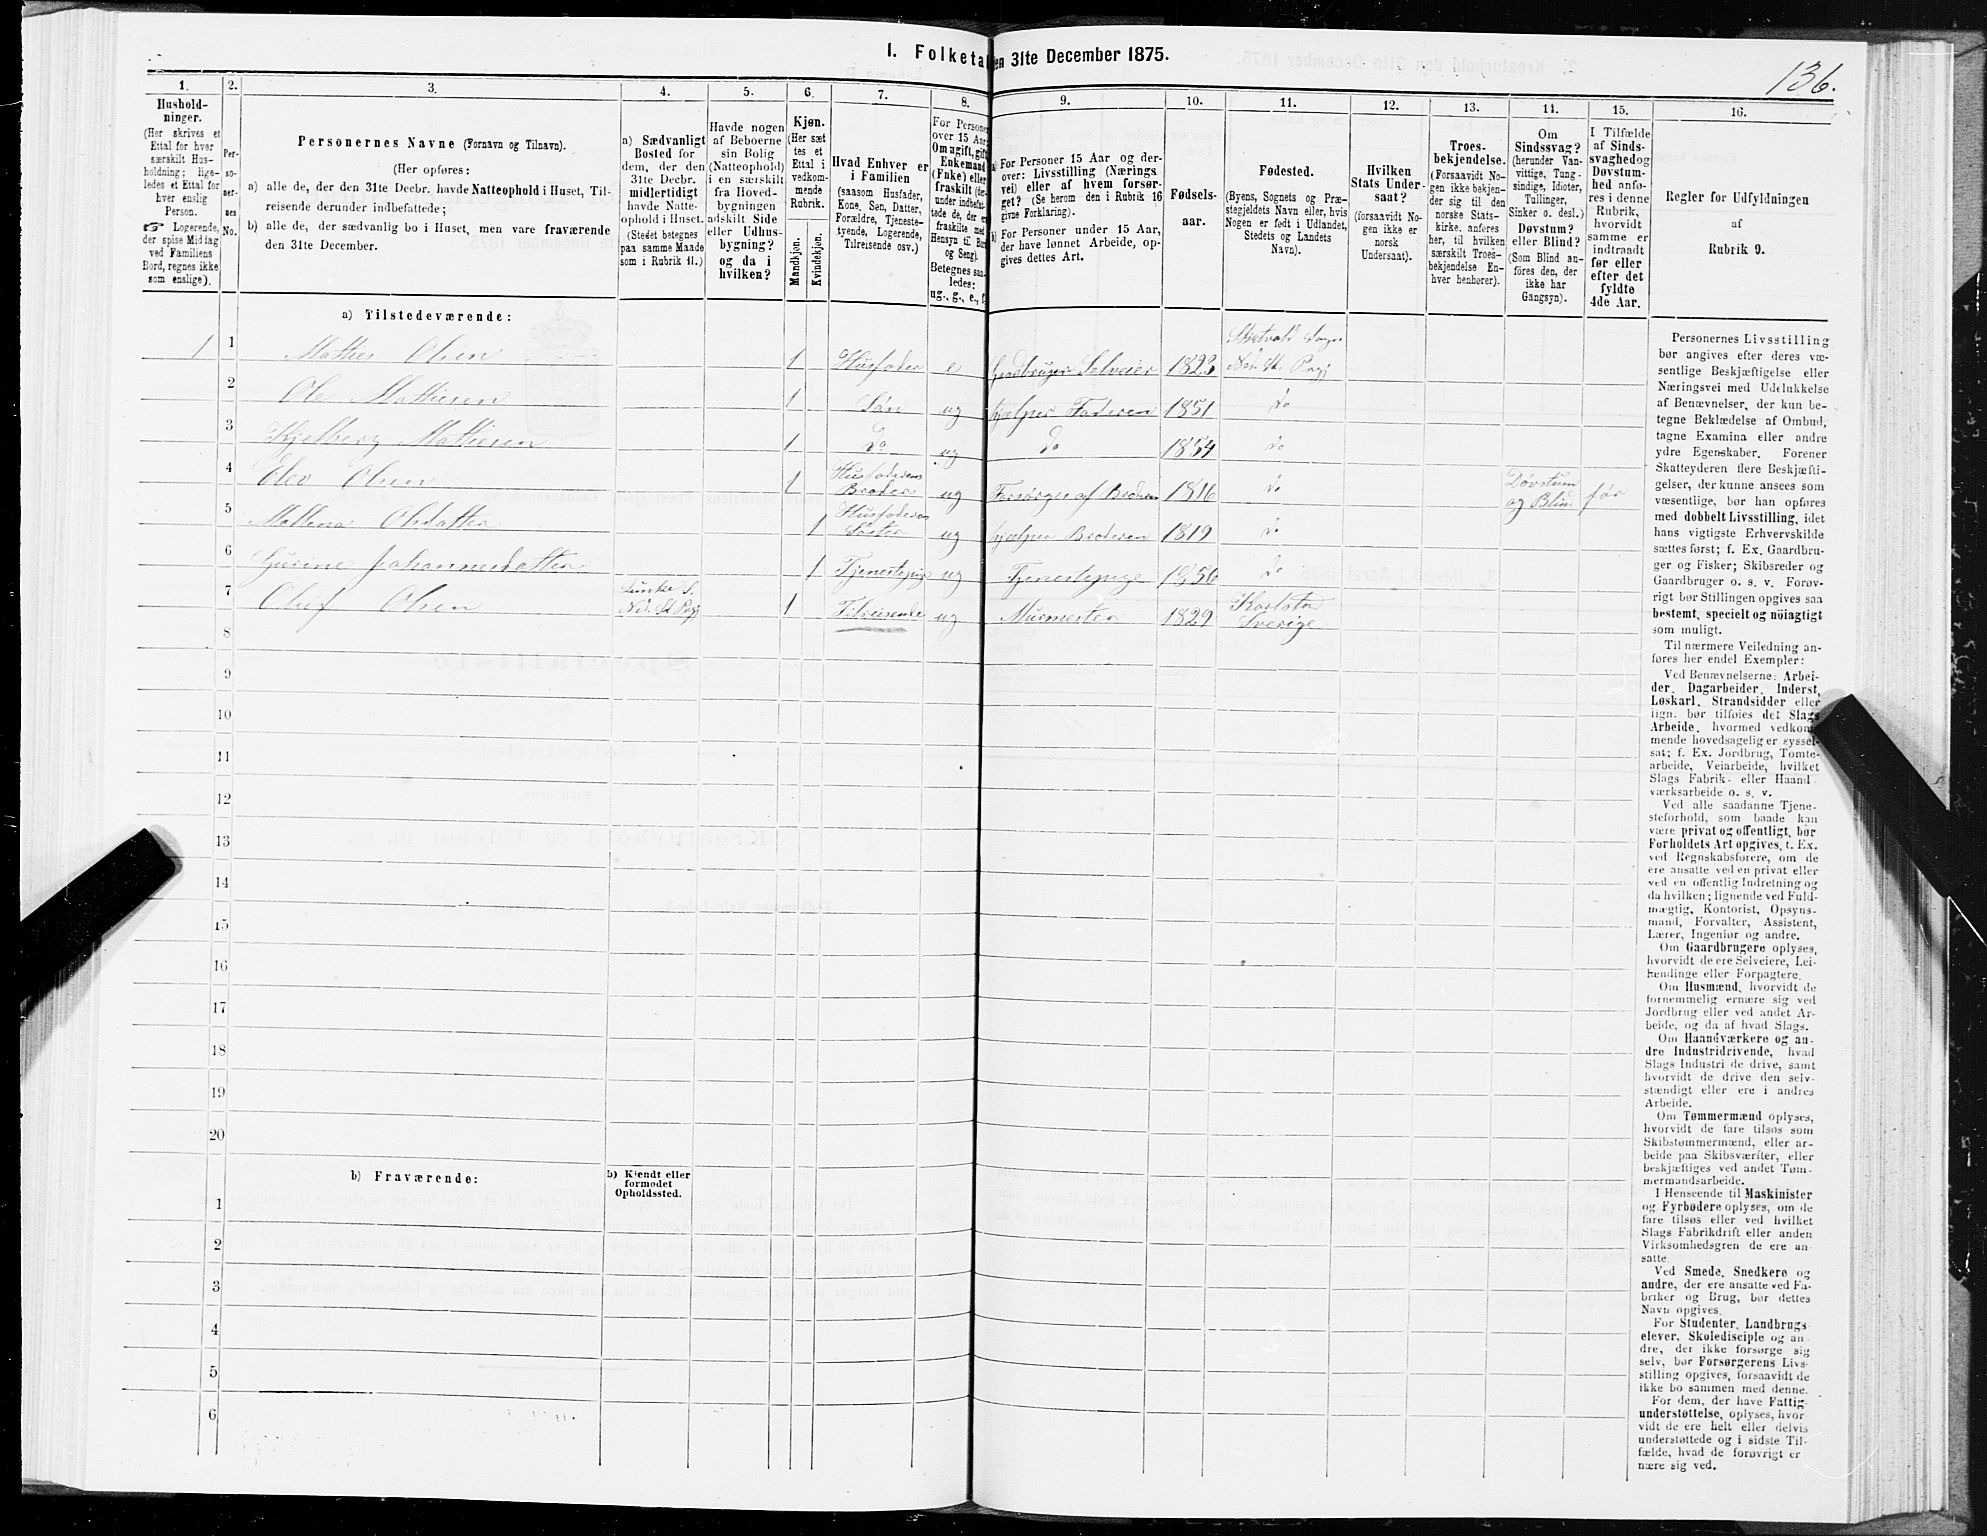 I. Folketal
en 31te December 1875.
136.
1.
2.
3.
4.
5.
6.
7.
8.
9.
10.
11.
12.
13.
14.
15.
16.
Hushold-
ninger.
(Her skrives et
Ettal for hver
særskilt Hus-
holdning; lige-
ledes et Ettal for
hver enslig
Person.
☞ Logerende,
der spise Middag
ved Familiens
Bord, regnes ikke
som enslige).
Per-
so-
ner-
nes
No.
Personernes Navne (Fornavn og Tilnavn).
(Her opføres:
a) alle de, der den 31te Decbr. havde Natteophold i Huset, Til-
reisende derunder indbefattede;
b) alle de, der sædvanlig bo i Huset, men vare fraværende
den 31te December.
a) Sædvanligt
Bosted for
dem, der den
31te Decbr.
midlertidigt
havde Natte-
ophold i Huset.
(Stedet betegnes
paa samme Maade
som i Rubrik 11.)
Havde nogen
af Beboerne
sin Bolig
(Natteophold)
i en særskilt
fra Hoved-
bygningen
adskilt Side
eller Udhus-
bygning?
og da i
hvilken?
Kjøn.
(Her sæt
tes et
Ettal i
vedkom-
mende
Rubrik.
Mandkjøn.
Kvindekjøn.
Hvad Enhver er
i Familien
(saasom Husfader,
Kone, Søn, Datter,
Forældre, Tjeneste-
tyende, Logerende,
Tilreisende osv.)
For Personer
over 15 Aar
Om ugift, gift
Enkemand
(Enke) eller
fraskilt (der-
under indbefat-
tede de, der er
fraskilte med
Hensyn til Bord
og Seng).
Betegnes saa-
ledes:
ug., g., e., f.
a) For Personer 15 Aar og der-
over: Livsstilling (Nærings
vei) eller af hvem forsør-
get? (Se herom den i Rubrik 16
givne Forklaring).
b) For Personer under 15 Aar,
der have lønnet Arbeide, op-
gives dettes Art.
Fødsels-
aar.
Fødested.
(Byens, Sognets og Præ-
stegjeldets Navn eller, hvis
Nogen er født i Udlandet,
Stedets og Landets
Navn).
Hvilken
Stats Under-
saat?
(forsaavidt No-
gen ikke er
norsk
Undersaat).
Troes-
bekjendelse.
(Forsaavidt No-
gen ikke bekjen-
der sig til den
norske Stats-
kirke, anføres
her, til hvilken
særskilt Troes-
bekjendelse En-
hver henhører).
Om
Sindssvag?
(herunder Van-
vittige, Tung-
sindige, Idioter,
Tullinger,
Sinker o. desl.)
Døvstum?
eller Blind?
(Som Blind an-
føres den, der
ikke har
Gangsyn).
I Tilfælde
af Sinds-
svaghed og
Døvstum-
hed anfø-
res i denne
Rubrik,
hvorvidt
samme er
indtraadt
før eller
efter det
fyldte
4de Aar.
Regler for Udfyldningen
af
Rubrik 9.
a) Tilstedeværende:
1 1 Mathis Olsen 1 Husfader e Gaardbruger Selveier 1823 Skatvold Sogn Ned. St. Prgj
2 Ole Mathisen 1 Søn ug hjælper Faderen 1851 do
3 Kjelberg Mathisen 1 do ug do 1854 do
4 Elev Olsen 1 Husfaderens Broder ug Forsørges af Broderen 1816 do Døvstum og Blind før
5 Mallena Olsdatter 1 Husfaderens Søster ug hjælper Broderen 1819 do
6 Gurine Johannesdatter 1 Tjenestepige ug Tjenestepige 1856 do
7 Oluf Olsen Ned. St Prgj 1 Tilreisende ug Murmester 1829 Karlstad Sverige
8
9
10
11
12
13
14
15
16
17
18
19
20
b) Fraværende:
b) Kjendt eller
formodet
Opholdssted.
1
2
3
4
5
6
Personernes Livsstilling
bør angives efter deres væ-
sentlige Beskjæftigelse eller
Næringsvei med Udelukkelse
af Benævnelser, der kun be-
tegne Beklædelse af Ombud,
tagne Examina eller andre
ydre Egenskaber. Forener
Skatteyderen flere Beskjæfti-
gelser, der kunne ansees som
væsentlige, bør han opføres
med dobbelt Livsstilling, idet
hans vigtigste Erhvervskilde
sættes først; f. Ex. Gaardbru-
ger og Fisker; Skibsreder og
Gaardbruger o. s. v. Forøv-
rigt bør Stillingen opgives saa
bestemt, specielt og nöiagtigt
som muligt.
Til nærmere Veiledning an-
føres her endel Exempler:
Ved Benævnelserne: Arbei-
der, Dagarbeider, Inderst,
Løskarl, Strandsidder eller
lign. bør tilføies det Slags
Arbeide, hvormed vedkom-
mende hovedsagelig er syssel-
sat; f. Ex. Jordbrug, Tomte-
arbeide, Veiarbeide, hvilket
Slags Fabrik- eller Haand-
værksarbeide o. s. v.
Ved alle saadanne Tjene-
steforhold, som baade kan
være privat og offentligt, bør
Forholdets Art opgives, f. Ex.
ved Regnskabsførere, om de
ere ansatte ved en privat eller
ved en offentlig Indretning og
da hvilken; lignende ved Fuld-
mægtig, Kontorist, Opsyns-
mand, Forvalter, Assistent,
Lærer, Ingeniør og andre.
Om Gaardbrugere oplyses,
hvorvidt de ere Selveiere, Lei-
lændinge eller Forpagtere.
Om Husmænd, hvorvidt de
fornemmelig ernære sig ved
Jordbrug eller ved andet Ar-
beide, og da af hvad Slags.
Om Haandværkere og an-
dre Industridrivende, hvad
Slags Industri de drive, samt
hvorvidt de drive den selv-
stændigt eller ere i andres
Arbeide.
Om Tømmermænd oplyses,
hvorvidt de fare tilsøs som
Skibstømmermænd, eller ar-
beide paa Skibsværfter, eller
beskjæftiges ved andet Tøm-
mermandsarbeide.
I Henseende til Maskinister
og Fyrbødere oplyses, om de
fare tilsøs eller ved hvilket
Slags Fabrikdrift eller anden
Virksomhedsgren de ere an-
satte.
Ved Smede, Snedkere og
andre, der ere ansatte ved Fa-
briker og Brug, bør dettes
Navn opgives.
For Studenter, Landbrugs-
elever, Skoledisciple og an-
dre, der ikke forsørge sig
selv, bør Forsørgerens Livs-
stilling opgives, forsaavidt de
ikke bo sammen med denne.
For dem, der have Fattig-
understøttelse, oplyses, hvor-
vidt de ere helt eller delvis
understøttede og i sidste Til-
fælde, hvad de forøvrigt er-
nære sig ved.